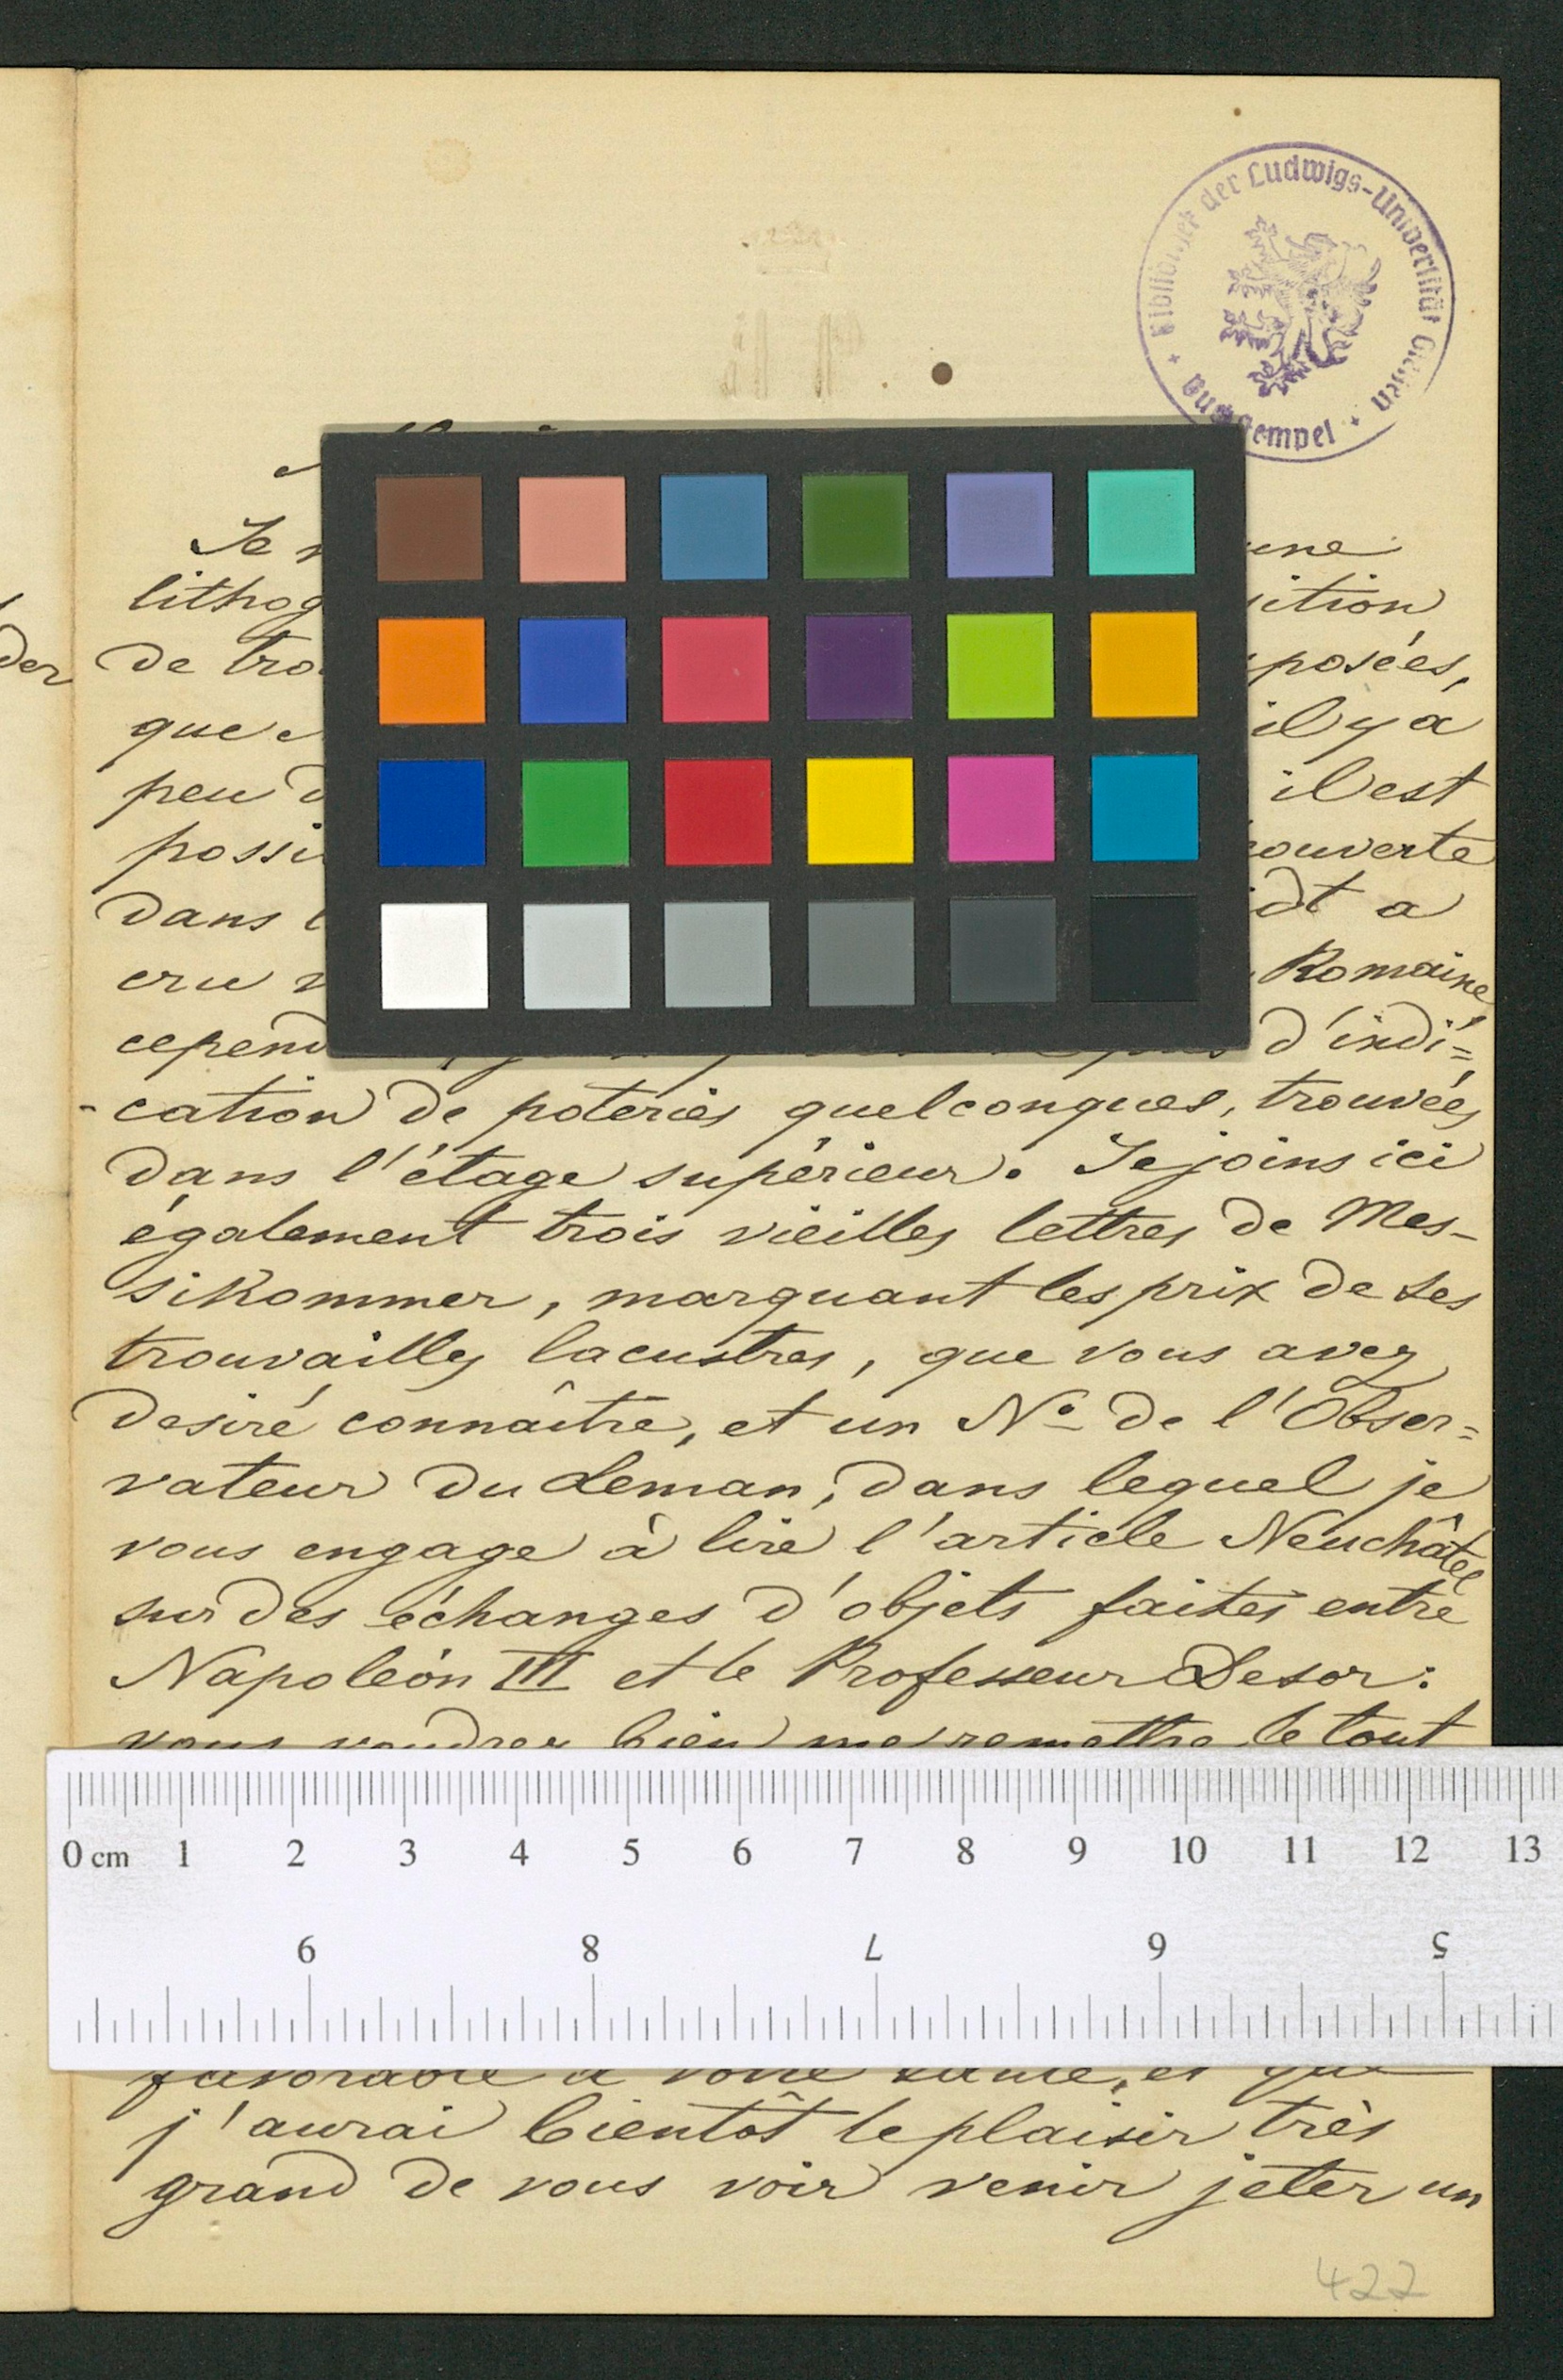 Bibliothek der Ludwigs-Universität Giessen
der
Je
une
lithog
ition
de tro
posées,
que
il y a
peu d
il est
possi
couverte
dans l
dt a
cru
Romaine,
cepend
d'indi=
-cation de poteries quelconques, trouvées
dans l'étage supérieur. Je joins ici
également trois vieilles lettres de Mes-
sikommer, marquant les prix de ses
trouvailles lacustres, que vous avez
desiré connaître, et un No de l'Obser=
vateur du Leman, dans lequel je
vous engage à lire l'article Neuchâtel
sur des échanges d'objets faites entre
Napoléon III et le Professeur Desor:
vous voudrez bien me remettre le tout
0 cm 1 2 3 4 5 6 7 8 9 10 11 12 13
9 8 7 6 5
favorable à votre santé, et que
j'aurai bientôt le plaisir très
grand de vous voir venir jeter un
422